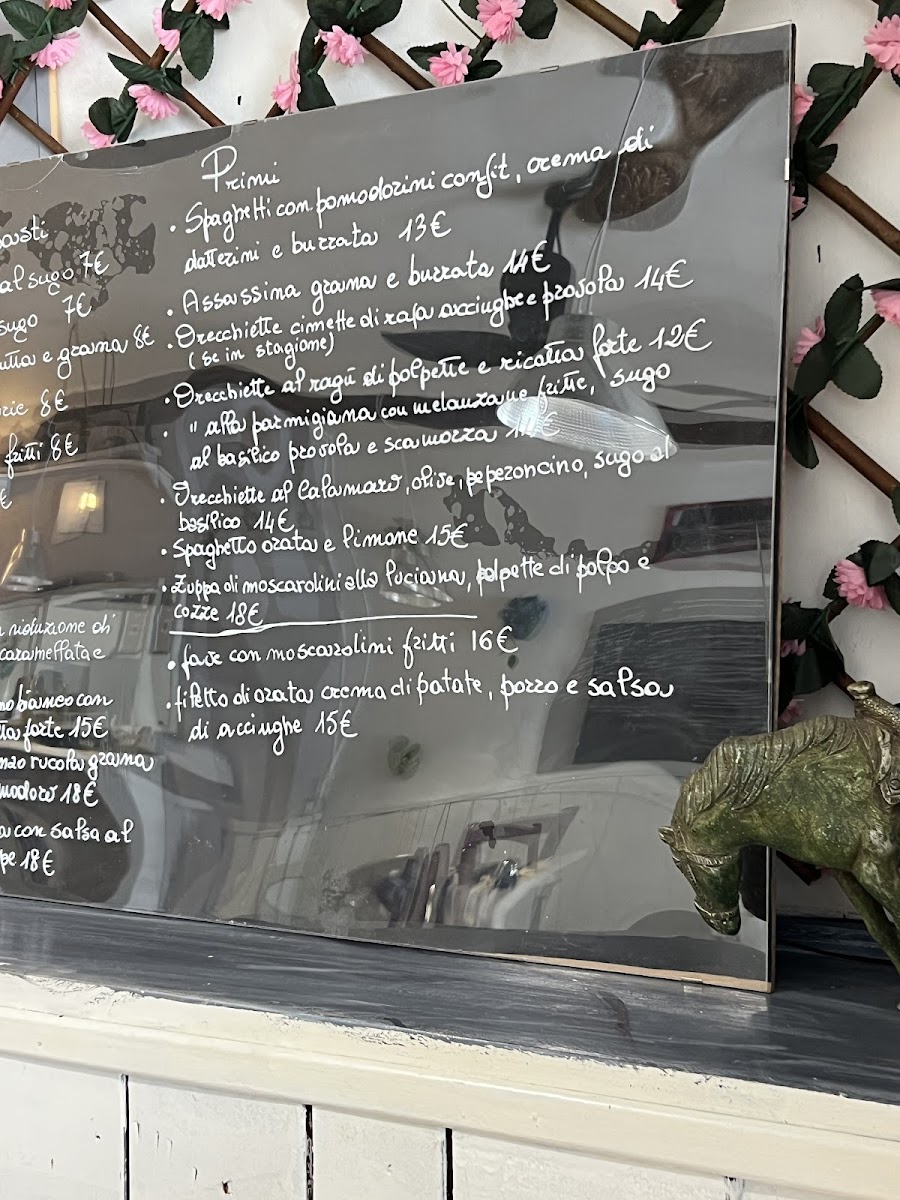 al sugo 7€
sugo 7€
e grana 8€
8€
fritti 8€
€
riduzione di
caramellata e
bianco con
forte 15€
rucola grana
18€
con salsa al
18€
Primi
• Spaghetti con pomodorini confit, crema di
datterini e burrata 13€
• Assassina grana e burrata 14€
• Orecchiette cimette di rapa acciughe e provola 14€
(se in stagione)
• Orecchiette al ragù di polpette e ricotta forte 12€
• " alla parmigiana con melanzane fritte, sugo
al basilico provola e scamorza €
• Orecchiette al Calamaro, olive, peperoncino, sugo al
basilico 14€
• Spaghetto orata e limone 15€
• Zuppa di moscarolini alla luciana, polpette di polpo e
cozze 18€
• fave con moscarolini fritti 16€
• filetto di orata crema di patate, porro e salsa
di acciughe 15€